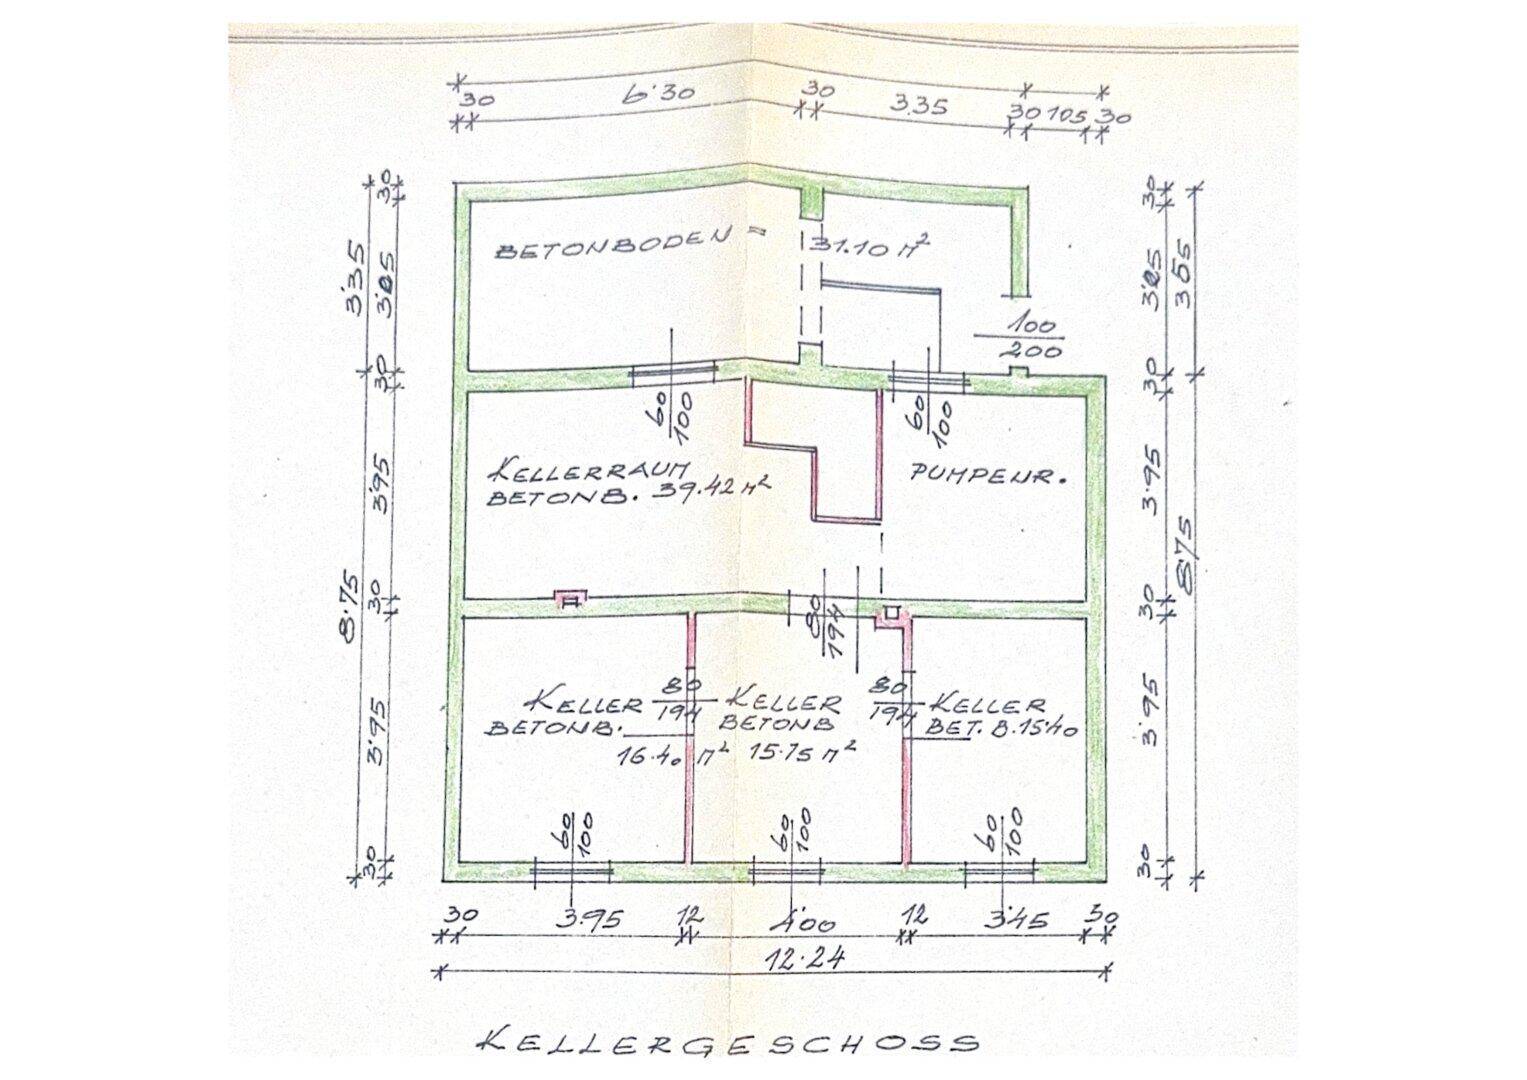 30 6.30 30 3.35 30 105 30
30
3.35
3.05
30
BETONBODEN = 31.10 m²
100
200
30
3.05
365
30
60
100
60
100
KELLERRAUM
BETONB. 39.42 m²
PUMPENR.
3.95
30
8.75
3.95
30
875
80
194
KELLER
BETONB.
16.40 m²
80
194
KELLER
BETONB
15.75 m²
80
194
KELLER
BET. B. 15.40
3.95
30
3.95
30
60
100
60
100
60
100
30 3.95 12 4.00 12 3.45 30
12.24
KELLERGESCHOSS